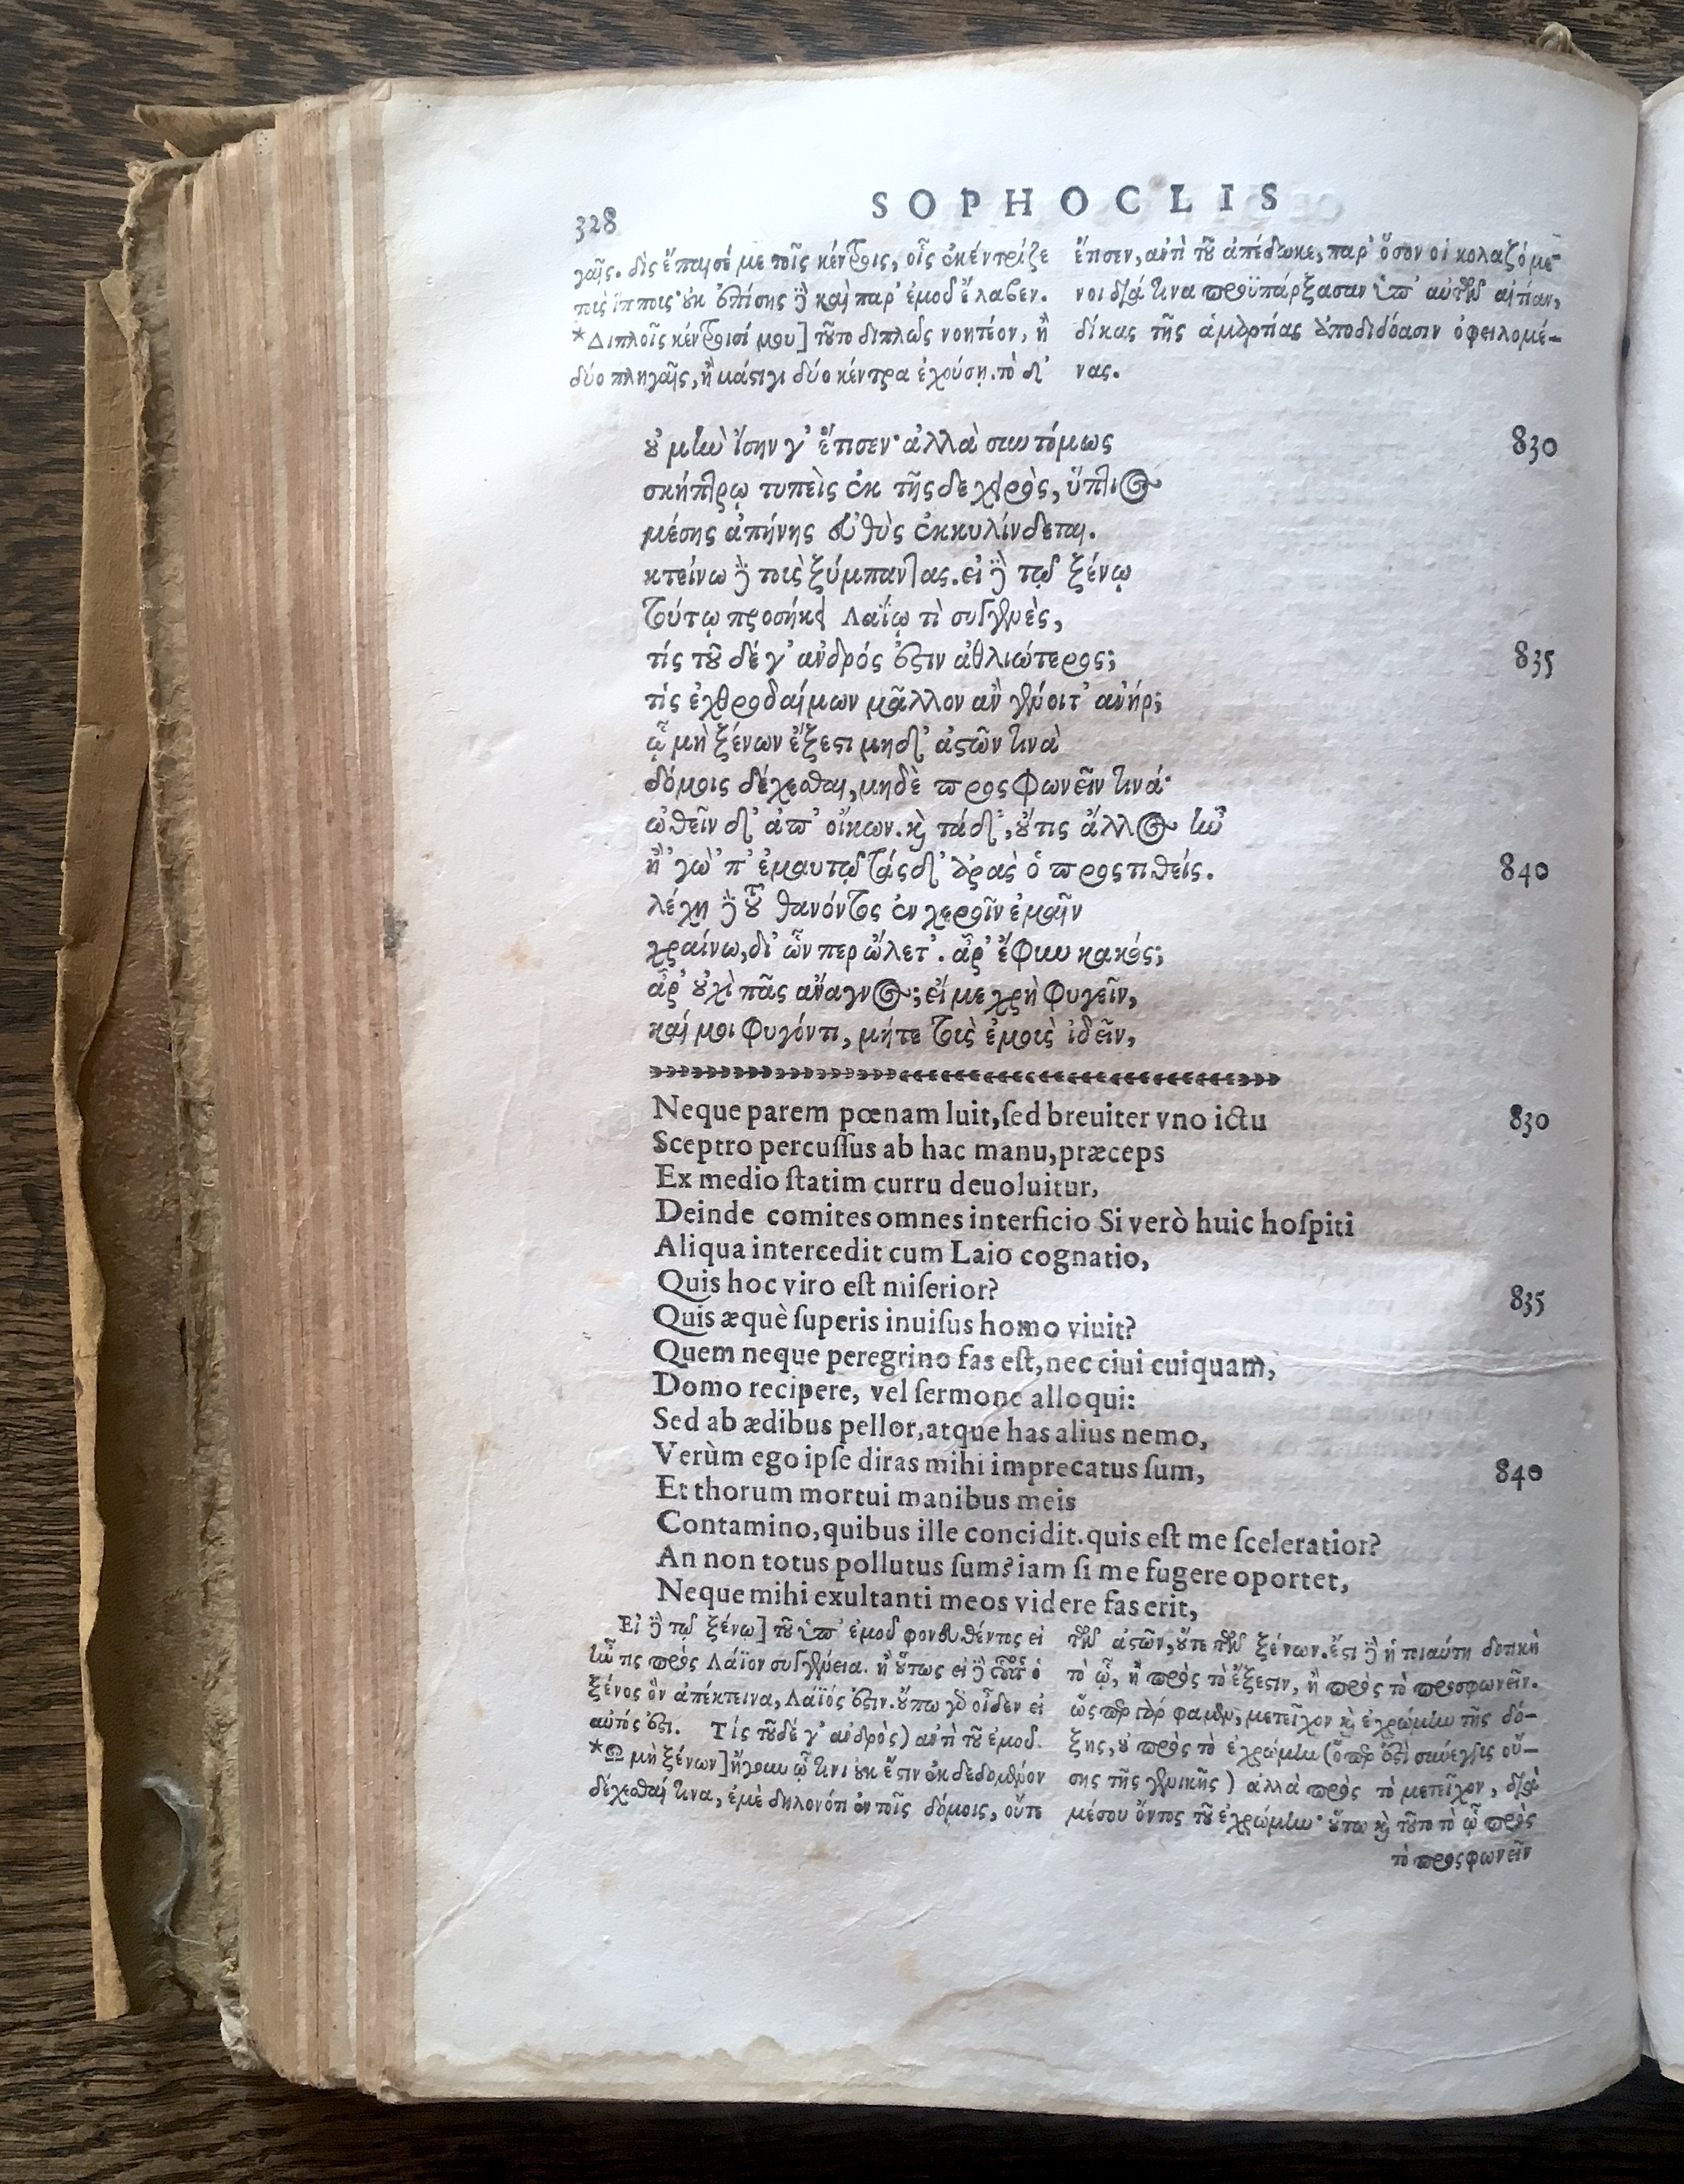 328
SOPHOCLIS
γαῖς. δὶς ἔπαισέ με τοῖς κέντροις, οἷς ἐκέντριζε
τοὺς ἵππους· οὐκ ἐπίσης δὲ καὶ παρ' ἐμοῦ ἔλαβεν.
*Διπλοῖς κέντροισί μου] τοῦτο διπλῶς νοητέον, ἢ
δύο πληγαῖς, ἢ μάστιγι δύο κέντρα ἐχούσῃ. τὸ δ'
ἔτισεν, ἀντὶ τοῦ ἀπέδωκε, παρ' ὅσον οἱ κολαζόμε-
νοι διά τινα προϋπάρξασαν ὑπ' αὐτῶν αἰτίαν,
δίκας τῆς ἁμαρτίας ἀποδιδόασιν ὀφειλομέ-
νας.
οὐ μὴν ἴσην γ' ἔτισεν· ἀλλὰ συντόμως 830
σκήπτρῳ τυπεὶς ἐκ τῆςδε χειρὸς, ὕπτιος
μέσης ἀπήνης εὐθὺς ἐκκυλίνδεται.
κτείνω δὲ τοὺς ξύμπαντας. εἰ δὲ τῷ ξένῳ
τούτῳ προσήκει Λαΐῳ τὶ συγγενὲς,
τίς τοῦ δέ γ' ἀνδρός ἐστιν ἀθλιώτερος; 835
τίς ἐχθροδαίμων μᾶλλον ἂν γένοιτ' ἀνήρ;
ᾧ μὴ ξένων ἔξεστι μηδ' ἀστῶν τινὰ
δόμοις δέχεσθαι, μηδὲ προςφωνεῖν τινά·
ὠθεῖν δ' ἀπ' οἴκων. καὶ τάδ', οὔτις ἄλλος ἦν
ἢ 'γὼ 'π' ἐμαυτῷ τάςδ' ἀρὰς ὁ προςτιθείς. 840
λέχη δὲ τοῦ θανόντος ἐν χεροῖν ἐμαῖν
χραίνω, δι' ὧν περ ὤλετ'. ἆρ' ἔφυν κακός;
ἆρ' οὐχὶ πᾶς ἄναγνος; εἴ με χρὴ φυγεῖν,
καί μοι φυγόντι, μήτε τοὺς ἐμοὺς ἰδεῖν,
Neque parem pœnam luit, ſed breuiter vno ictu 830
Sceptro percuſſus ab hac manu, præceps
Ex medio ſtatim curru deuoluitur,
Deinde comites omnes interficio Si verò huic hoſpiti
Aliqua intercedit cum Laio cognatio,
Quis hoc viro eſt miſerior? 835
Quis æquè ſuperis inuiſus homo viuit?
Quem neque peregrino fas eſt, nec ciui cuiquam,
Domo recipere, vel ſermone alloqui:
Sed ab ædibus pellor, atque has alius nemo,
Verùm ego ipſe diras mihi imprecatus ſum, 840
Et thorum mortui manibus meis
Contamino, quibus ille concidit. quis eſt me ſceleratior?
An non totus pollutus ſum? iam ſi me fugere oportet,
Neque mihi exultanti meos videre fas erit,
Εἰ δὲ τῷ ξένῳ] τοῦ ὑπ' ἐμοῦ φονευθέντος εἰ
ἦν τις πρὸς Λάϊον συγγένεια. ἢ οὕτως εἰ δὲ οὗτος ὁ
ξένος ὃν ἀπέκτεινα, Λάϊός ἐστιν. οὔπω γὰρ οἶδεν εἰ
αὐτός ἐστι. Τίς τοῦδέ γ' ἀνδρὸς) ἀντὶ τοῦ ἐμοῦ.
*Ω μὴ ξένων] ἤγουν ᾧ τινι οὐκ ἔστιν ἐκδεδομένον
δέχεσθαί τινα, ἐμὲ δηλονότι ἐν τοῖς δόμοις, οὔτε
τῶν ἀστῶν, οὔτε τῶν ξένων. ἔστι δὲ ἡ τοιαύτη δοτικὴ
τὸ ᾧ, ἢ πρὸς τὸ ἔξεστιν, ἢ πρὸς τὸ προσφωνεῖν.
ὥσπερ γὰρ φαμὲν, μετεῖχον καὶ ἐχρώμην τῆς δό-
ξης, οὐ πρὸς τὸ ἐχρώμην (ὅπερ ἐστὶ συνεγγὺς οὔ-
σης τῆς γενικῆς) ἀλλὰ πρὸς τὸ μετεῖχον, διὰ
μέσου ὄντος τοῦ ἐχρώμην· οὕτω καὶ τοῦτο τὸ ᾧ πρὸς
τὸ προςφωνεῖν